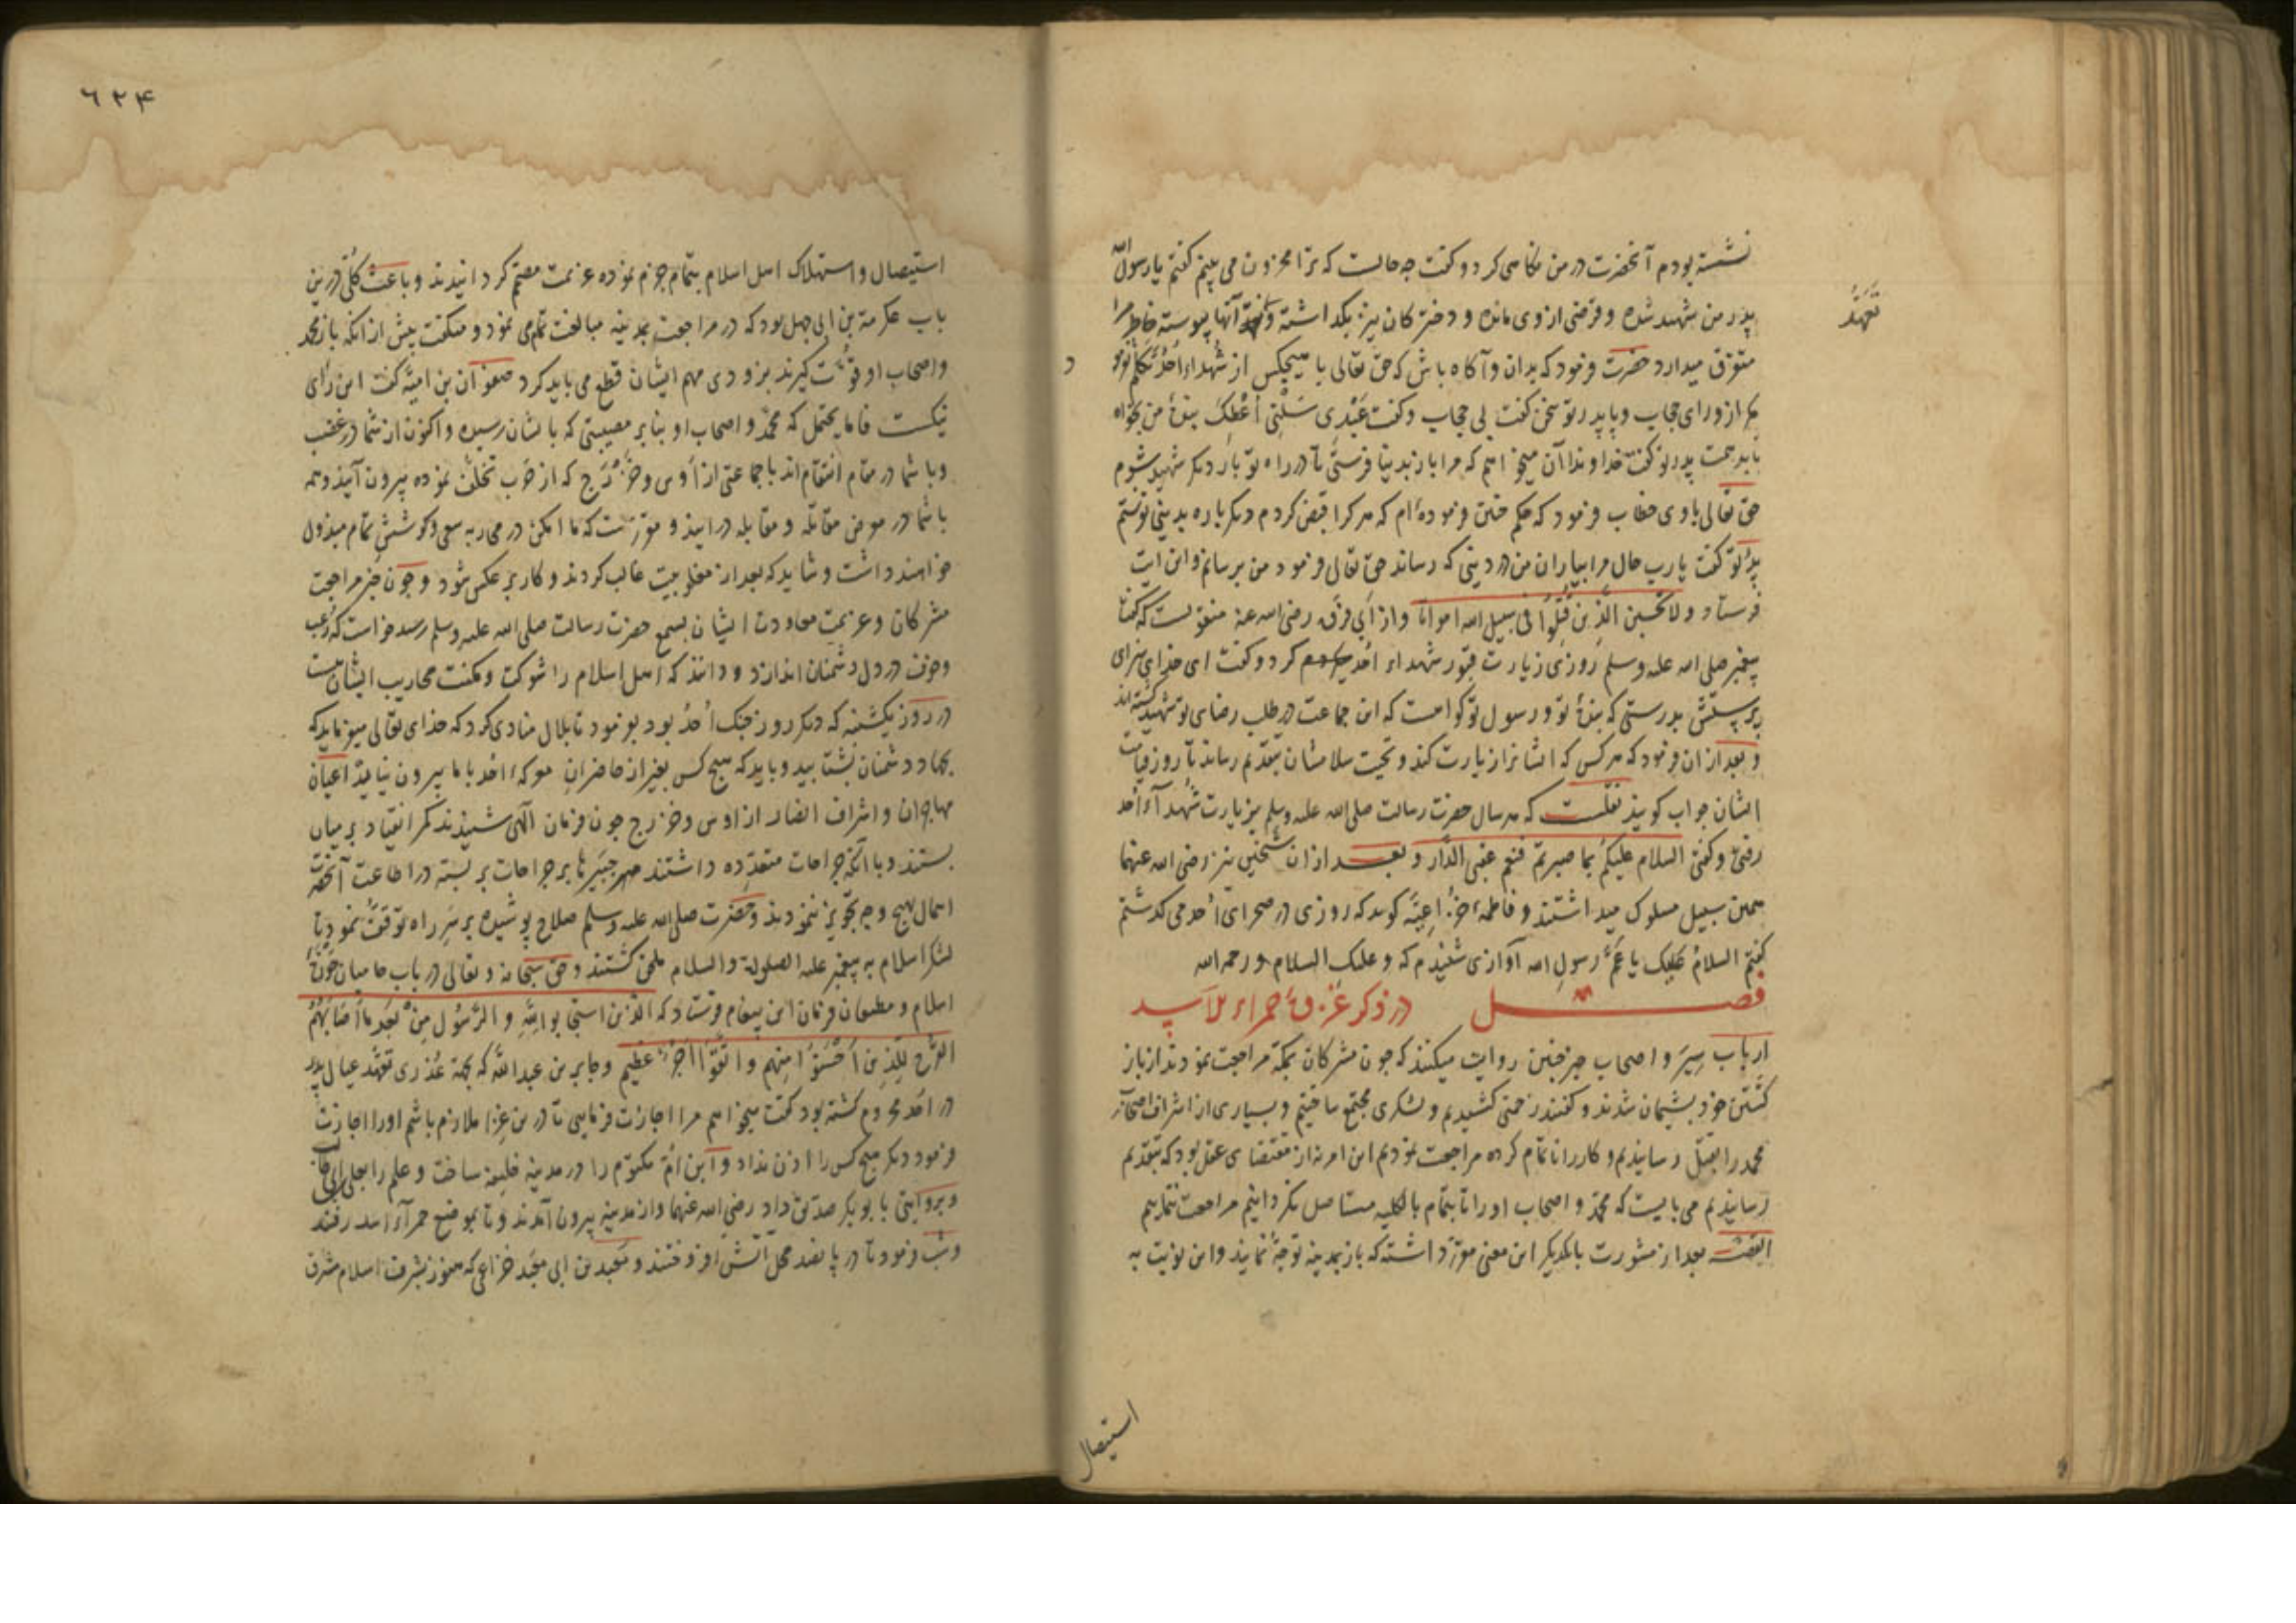 نشسته بودم آنحضرت در من نگاهی کرد و گفت چه حالست که ترا محزون می بینم گفتم یا رسول الله
پدر من شهید شده و قرضی از وی مانده و دخترکان نیز بگذاشته و آنها پیوسته خاطر مرا
تعهد
متفرق میدارد حضرت فرمود که بدان و آگاه باش که حق تعالی با هیچکس از شهداء احد تکلم نفرمود
مگر از ورای حجاب و با پدر تو سخن گفت بی حجاب و گفت عبدی سلنی اعطک بنده من بخواه
پدر تو گفت خداوندا آن میخواهم که مرا باز بدنیا فرستی تا در راه تو بار دیگر شهید شوم
حق تعالی با وی خطاب فرمود که حکم چنین فرموده ام که هر کرا قبض کردم دیگر باره بدنیی نفرستم
پدر تو گفت یا رب حال مرا بیاران من در دینی که رساند حق تعالی فرمود من برسانم و این آیت
فرستاد و لا تحسبن الذین قتلوا فی سبیل الله امواتا و از ابی فروه رضی الله عنه منقولست که گفت
پیغمبر صلی الله علیه وسلم روزی زیارت قبور شهداء احد کرد و گفت ای خدای سزای
پرستش بدرستی که بنده تو و رسول تو گواهست که این جماعت در طلب رضای تو شهید گشته اند
و بعد ازان فرمود که هر کس که ایشانرا زیارت کند و تحیت سلامشان بتقدیم رساند تا روز قیامت
ایشان جواب گویند نقلست که هر سال حضرت رسالت صلی الله علیه وسلم بزیارت شهداء احد
رفتی و گفتی السلام علیکم بما صبرتم فنعم عقبی الدار و بعد ازان شیخین نیز رضی الله عنهما
همین سبیل مسلوک میداشتند و فاطمه خزاعیه گوید که روزی در صحرای احد می گذشتم
گفتم السلام علیک یا عم رسول الله آوازی شنیدم که و علیک السلام و رحمة الله
فصل در ذکر غزوهٔ حمراء الاسد
ارباب سیر و اصحاب خبر چنین روایت میکنند که چون مشرکان بمکه مراجعت نمودند از باز
گشتن خود پشیمان شدند و گفتند زحمتی کشیدیم و لشکری مجتمع ساختیم و بسیاری از اشراف اصحاب
محمد را بقتل رسانیدیم و کار را ناتمام کرده مراجعت نمودیم این امر نه از مقتضای عقل بود که بتقدیم
رسانیدیم می بایست که محمد و اصحاب او را تا بتمام بالکلیه مستاصل نگردانیم مراجعت ننماییم
القصه بعد از مشورت با یکدیگر این معنی مقرر داشته که باز بمدینه توجه نمایند و این نوبت به
استیصال
٦٢۴
استیصال و استهلاک اهل اسلام بتمام جزم نموده عزیمت مصمم گردانیدند و باعث کلی درین
باب عکرمة بن ابی جهل بود که در مراجعت بمدینه مبالغت تمام می نمود و میگفت پیش از آنکه باز محمد
و اصحاب او قوت گیرند بزودی مهم ایشان قطع می باید کرد صفوان بن امیه گفت این رای
نیکست فاما یحتمل که محمد و اصحاب او بنا بر مصیبتی که بایشان رسیده و اکنون از شما در غضب
و با شما در مقام انتقام اند با جماعتی از اوس و خزرج که از حرب تخلف نموده بیرون آیند و همه
با شما در معرض مقاتله و مقابله درآیند و مقررست که ما امکن در محاربه سعی و کوشش تمام مبذول
خواهند داشت و شاید که بعد از مغلوبیت غالب گردند و کار بر عکس شود و چون خبر مراجعت
مشرکان و عزیمت معاودت ایشان بسمع حضرت رسالت صلی الله علیه وسلم رسید خواست که رعب
و خوف در دل دشمنان اندازد و دانند که اهل اسلام را شوکت و مکنت محاربه ایشان هست
در روز یکشنبه که دیگر روز جنگ احد بود بفرمود تا بلال منادی کرد که خدای تعالی میفرماید که
بجهاد دشمنان بشتابید و باید که هیچ کس بغیر از حاضران معرکهٔ احد با ما بیرون نیاید اعیان
مهاجران و اشراف انصار از اوس و خزرج چون فرمان الهی شنیدند کمر انقیاد بر میان
بستند و با آنکه جراحات متعدده داشتند جبیرها بر جراحات بر بسته در اطاعت آنحضرت
اهمال بهیچ وجه تجویز ننمودند و حضرت صلی الله علیه وسلم سلاح پوشیده بر سر راه توقف نمود تا
لشکر اسلام به پیغمبر علیه الصلوة والسلام ملحق گشتند و حق سبحانه و تعالی در باب حامیان حوزهٔ
اسلام و مطیعان فرمان این پیغام فرستاد که الذین استجابوا لله و الرسول من بعد ما اصابهم
القرح للذین احسنوا منهم و اتقوا اجر عظیم و جابر بن عبدالله که بجهة عذری تعهد عیال پدر
در احد محروم گشته بود گفت میخواهم مرا اجازت فرمایی تا درین غزا ملازم باشم او را اجازت
فرمود دیگر هیچ کس را اذن نداد و ابن ام مکتوم را در مدینه خلیفه ساخت و علم را بعلی
و بروایتی با بوبکر صدیق داد رضی الله عنهما و از مدینه بیرون آمدند و تا بموضع حمراء الاسد رفتند
و شب فرمود تا در پانصد محل آتش افروختند و معبد بن ابی معبد خزاعی که هنوز بشرف اسلام مشرف